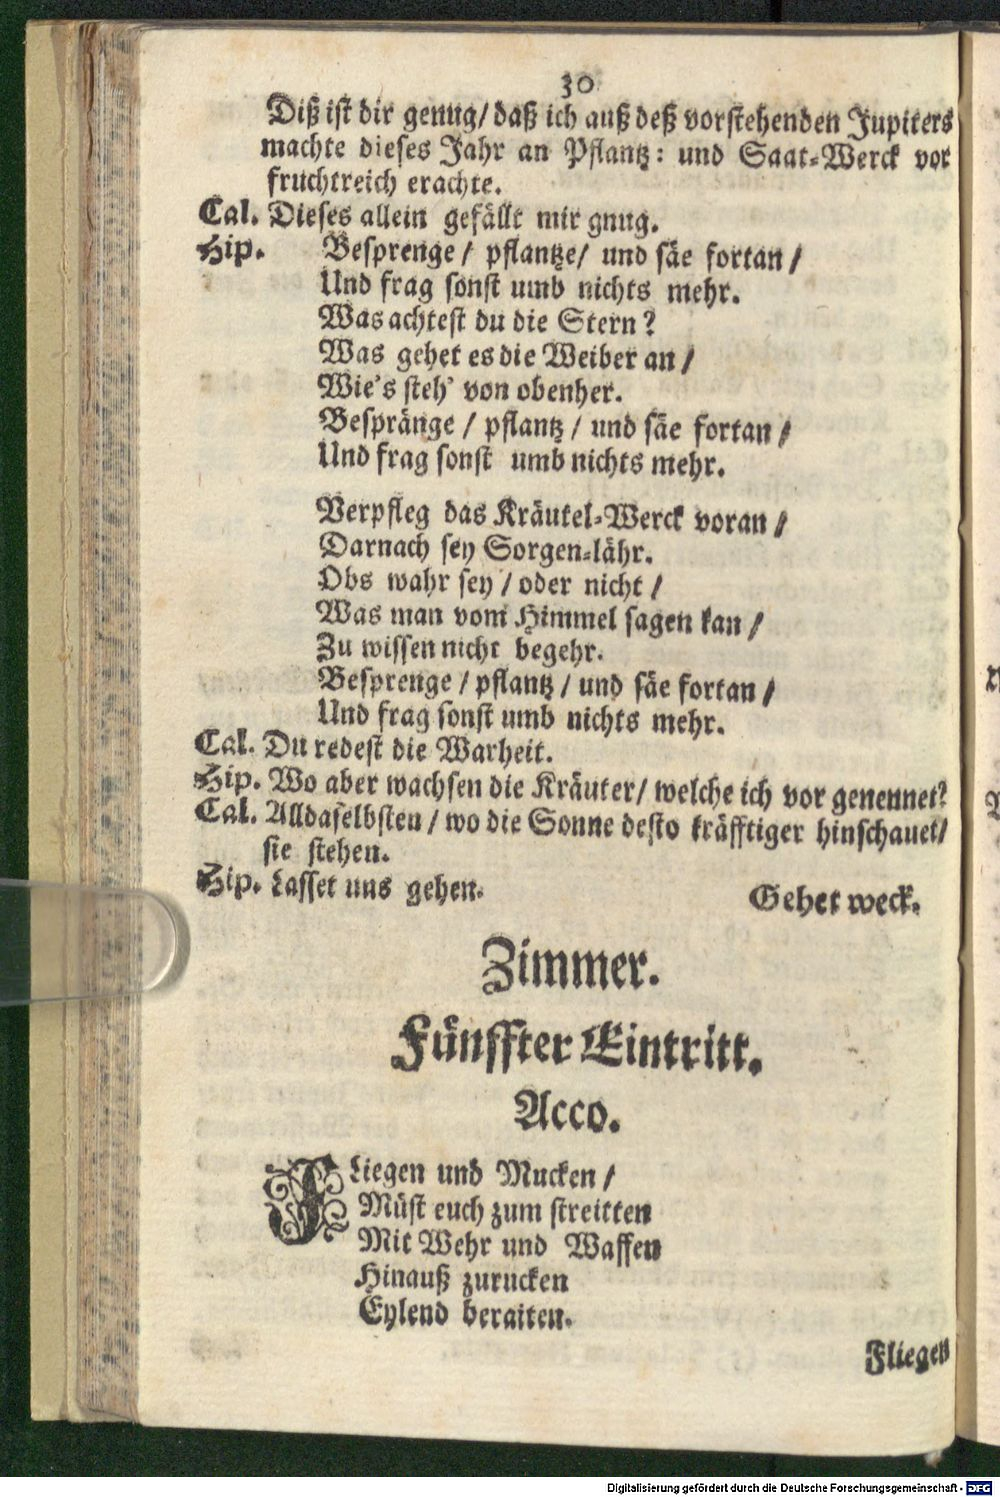 30
Diß ist dir genug/ daß ich auß deß vorstehenden Jupiters
machte dieses Jahr an Pflantz: und Saat-Werck vor
fruchtreich erachte.
Cal. Dieses allein gefällt mir gnug.
Hip. Besprenge / pflantze/ und säe fortan /
Und frag sonst umb nichts mehr.
Was achtest du die Stern?
Was gehet es die Weiber an /
Wie's steh' von obenher.
Bespränge / pflantz / und säe fortan /
Und frag sonst umb nichts mehr.
Verpfleg das Kräutel-Werck voran /
Darnach sey Sorgen-lähr.
Obs wahr sey / oder nicht /
Was man vom Himmel sagen kan /
Zu wissen nicht begehr.
Besprenge / pflantz / und säe fortan /
Und frag sonst umb nichts mehr.
Cal. Du redest die Warheit.
Hip. Wo aber wachsen die Kräuter/ welche ich vor genennet?
Cal. Alldaselbsten / wo die Sonne desto kräfftiger hinschauet/
sie stehen.
Hip. Lasset uns gehen. Gehet weck.
Zimmer.
Fünffter Eintritt.
Acco.
FLiegen und Mucken /
Müst euch zum streitten
Mit Wehr und Waffen
Hinauß zurucken
Eylend beraiten.
Fliegen
Digitalisierung gefördert durch die Deutsche Forschungsgemeinschaft - DFG